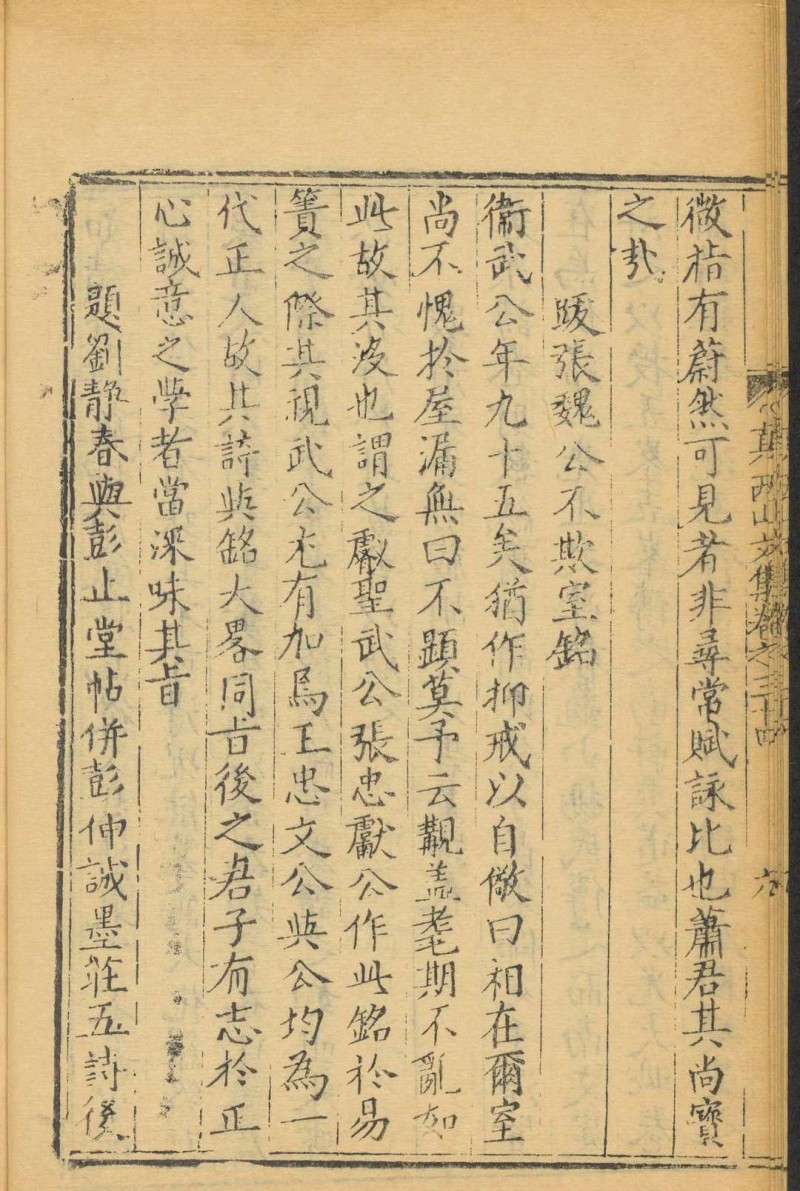 微指有蔚然可見者非尋常賦詠比也蕭君其尚寳
之㢤
跋張魏公不欺室銘
衞武公年九十五矣猶作抑戒以自儆曰相在爾室
尚不愧於屋漏無曰不顕莫予云覯盖耄期不亂如
此故其没也謂之叡聖武公張忠獻公作此銘於易
簀之際其視武公尤有加焉王忠文公與公均為一
代正人故其詩與銘大畧同旨後之君子有志於正
心誠意之學者當深味其旨
題劉静春與彭止堂帖併彭仲誠墨莊五詩後
真西山文集卷之三十四
六